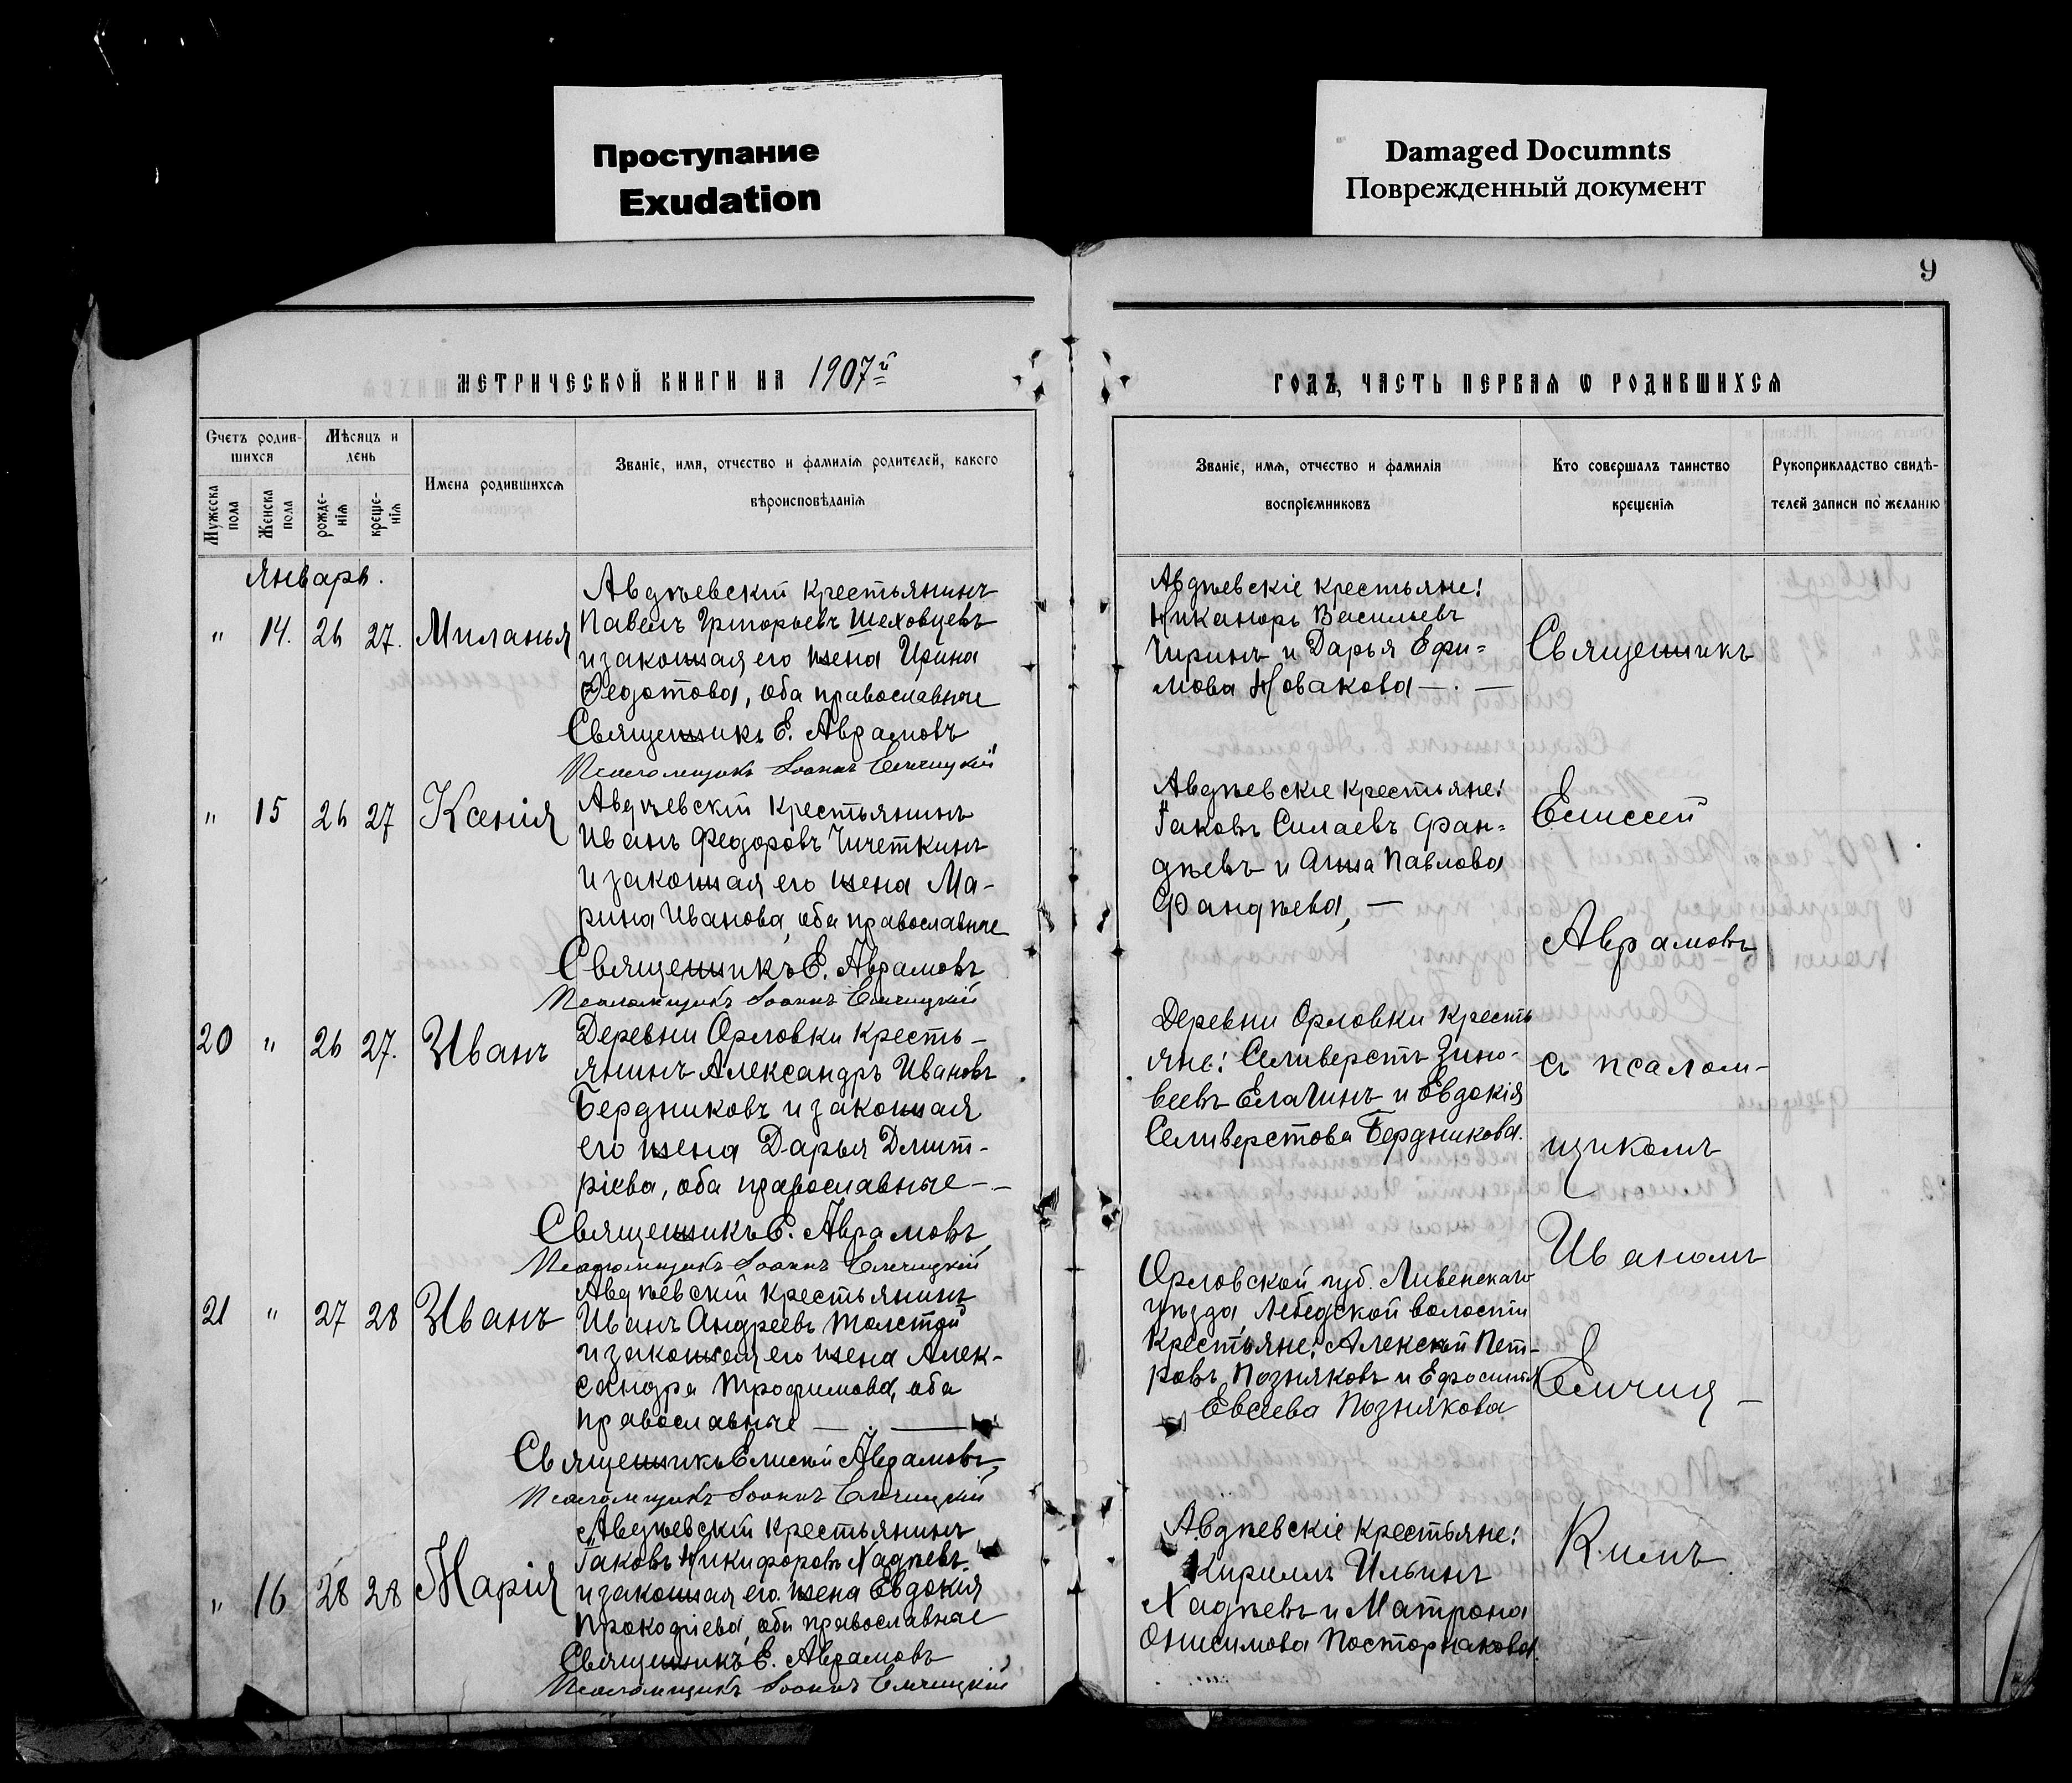 Проступание
Exudation
Damaged Documnts
Поврежденный документ
9
МЕТРИЧЕСКОЙ КНИГИ НА 1907й
ГОДЪ, ЧАСТЬ ПЕРВАЯ Ѡ РОДИВШИХСЯ
Счетъ родив-
шихся
Мѣсяцъ и
день
Мужеска
пола
Женска
пола
рожде-
нія
креще-
нія
Имена родившихся
Званіе, имя, отчество и фамилія родителей, какого
вѣроисповѣданія
Званіе, имя, отчество и фамилія
воспріемниковъ
Кто совершалъ таинство
крещенія
Рукоприкладство свидѣ-
телей записи по желанію
Январь.
" 14. 26 27. Миланья
Авдѣевскій крестьянинъ
Павелъ Григорьевъ Шеховцевъ
и законная его жена Ирина
Федотова, оба православные
Священникъ Е. Аврамовъ
Псаломщикъ Іоаннъ
Авдѣевскіе крестьяне:
Никаноръ Васильевъ
Чиринъ и Дарья Ефи-
мова Новакова — . —
" 15 26 27 Ксенія
Авдѣевскій крестьянинъ
Иванъ Федоровъ Чичеткинъ
и законная его жена Ма-
рина Иванова, оба православные
Священникъ Е. Аврамовъ
Псаломщикъ Іоаннъ
Авдѣевскіе крестьяне:
Іаковъ Силаевъ Фан-
дѣевъ и Анна Павлова
Фандѣева, —
20 " 26 27. Иванъ
Деревни Орловки кресть-
янинъ Александръ Ивановъ
Бердниковъ и законная
его жена Дарья Дмит-
ріева, оба православные - -
Священникъ Е. Аврамовъ
Псаломщикъ Іоаннъ
Деревни Орловки кресть
яне: Селиверстъ Зино-
веевъ Елагинъ и Евдокія
Селиверстова Бердникова.
21 " 27 28 Иванъ
Авдѣевскій крестьянинъ
Иванъ Андреевъ Толстой
и законная его жена Алек-
сандра Трофимова, оба
православные —
Священникъ Елисей Аврамовъ
Псаломщикъ Іоаннъ
Орловской губ. Ливенскаго
уѣзда, Лебедской волости
крестьяне: Алексѣй Пет-
ровъ Позняковъ и Ефросинья
Евсеева Познякова
" 16 28 28 Марія
Авдѣевскій крестьянинъ
Іаковъ Никифоровъ Хадѣевъ
и законная его жена Евдокія
Прокофіева, оба православные
Священникъ Е. Аврамовъ
Псаломщикъ Іоаннъ
Авдѣевскіе крестьяне:
Кириллъ Ильинъ
Хадѣевъ и Матрона
Онисимова Посторнакова.
Священникъ
Елисей
Аврамовъ
съ псалом-
щикомъ
Иваномъ